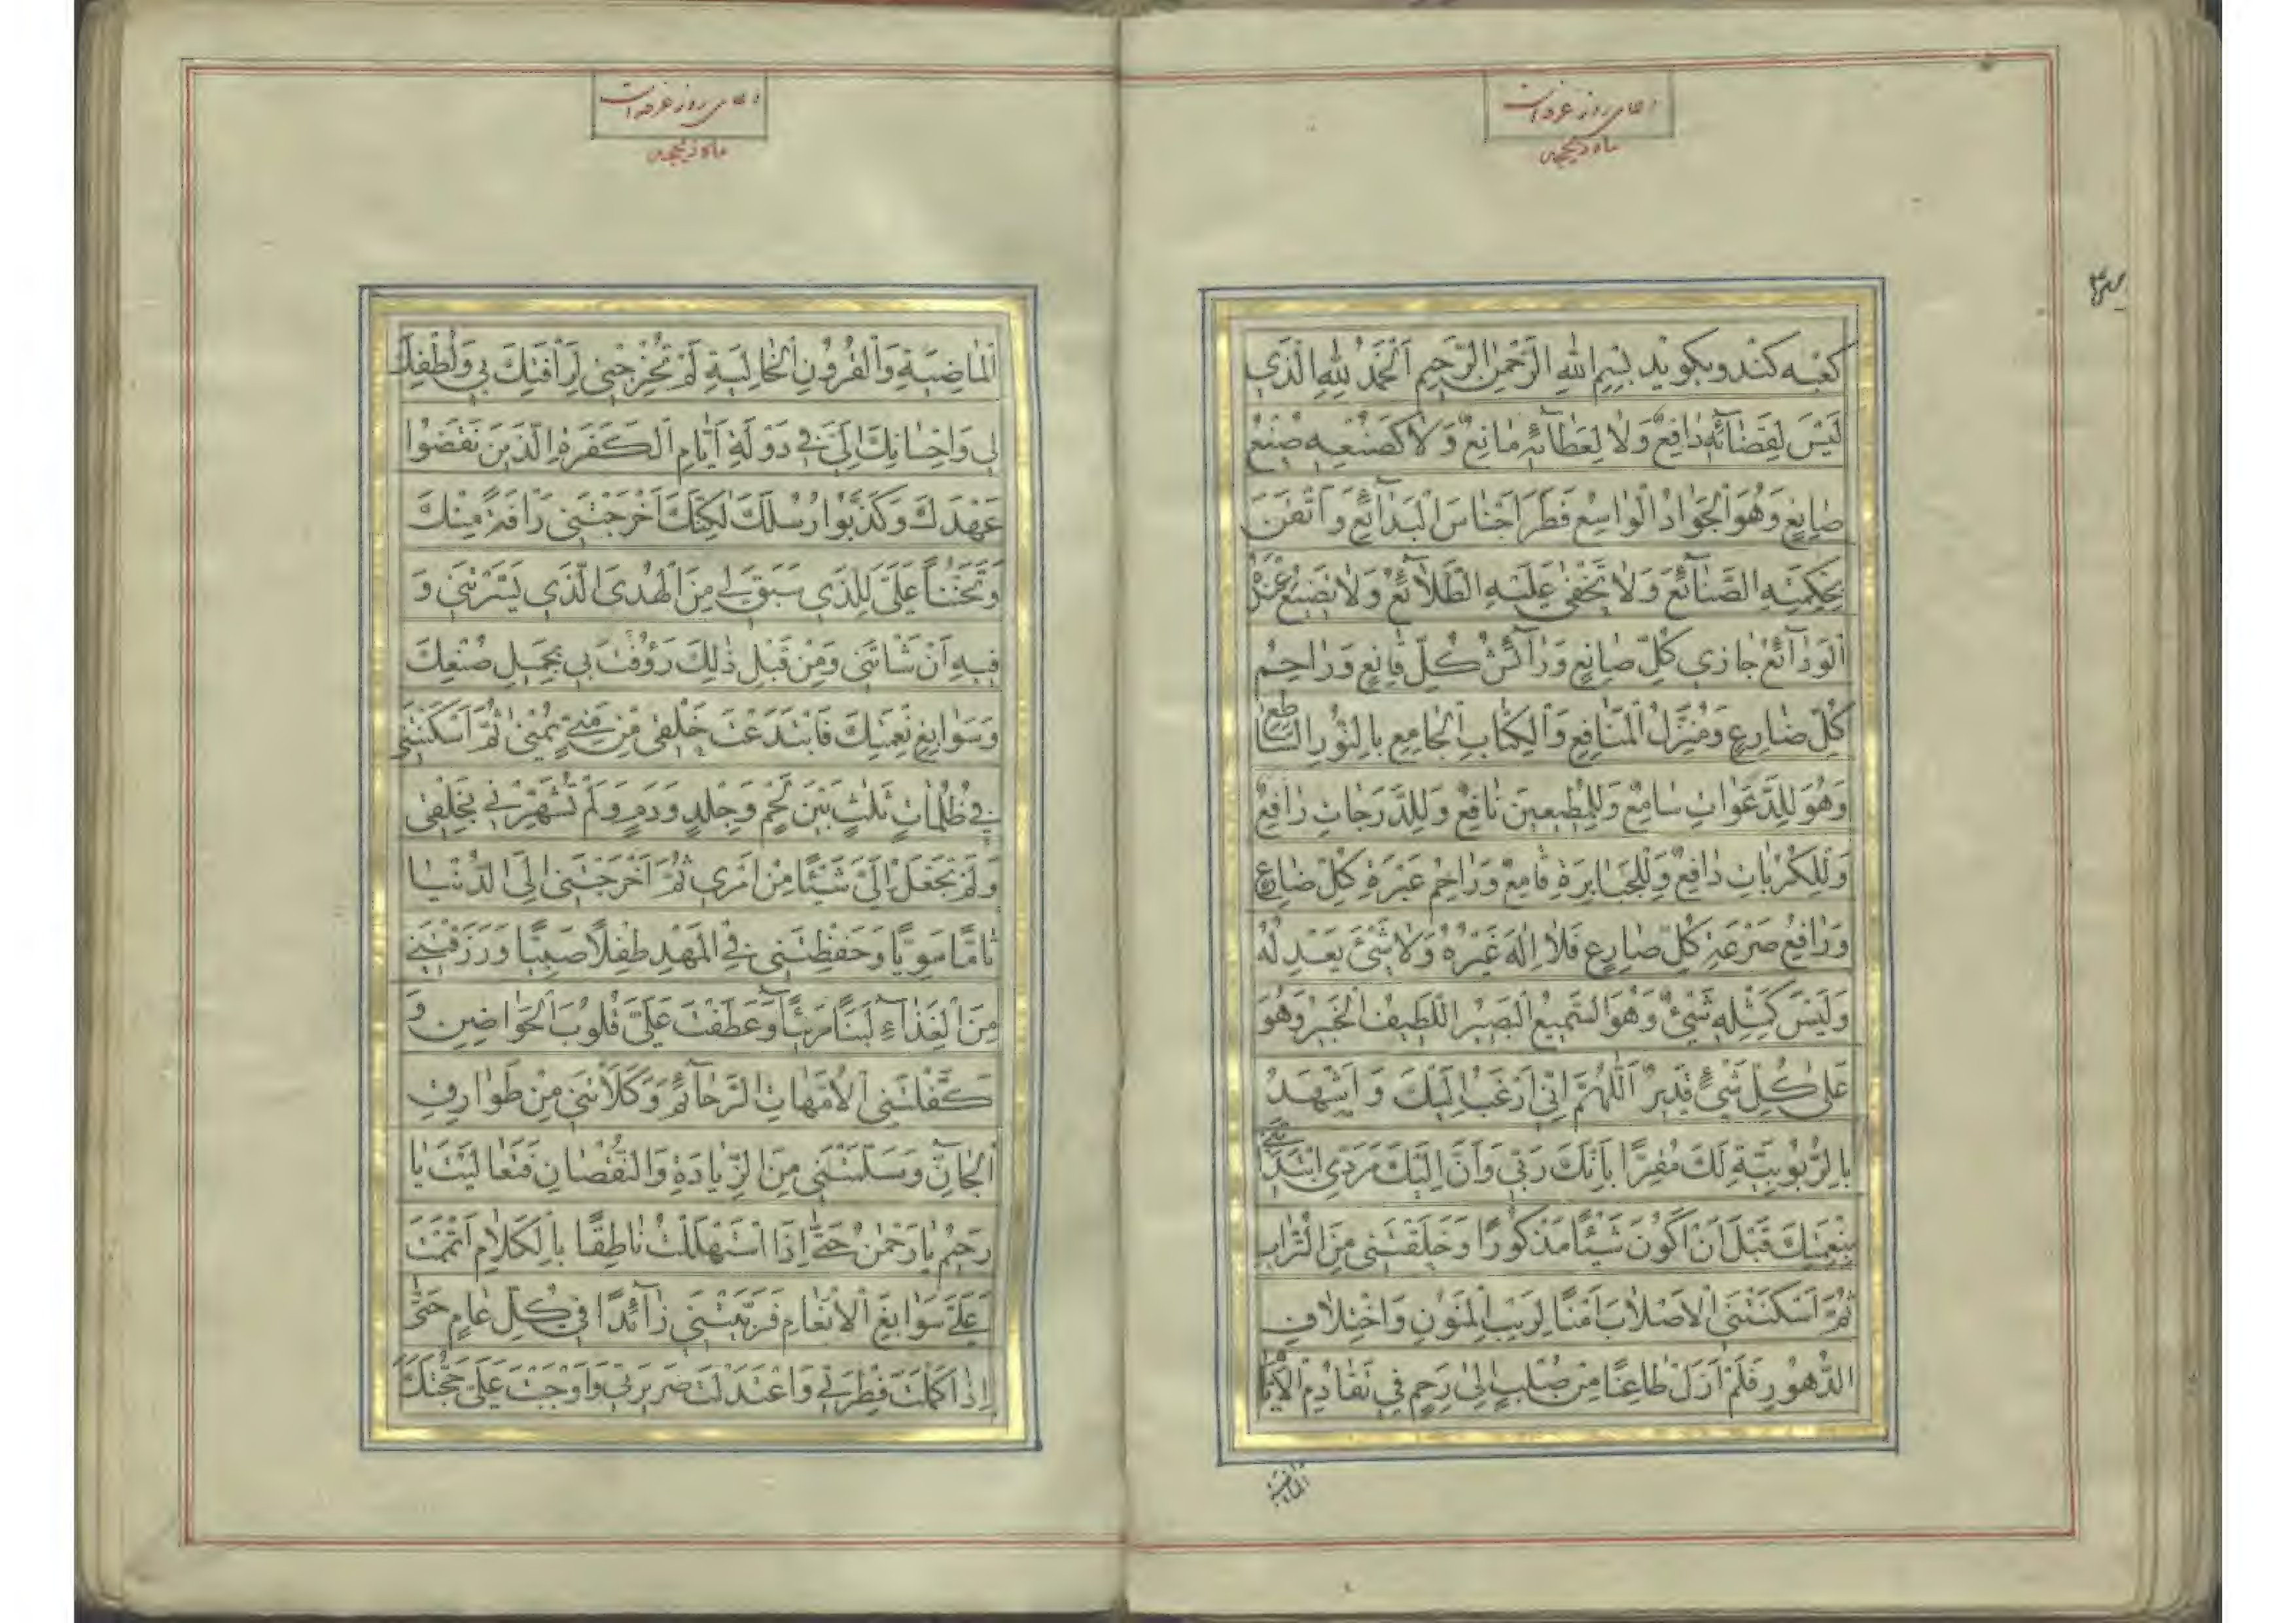 دعای روز عرفه است
ماه ذیحجه
کعبه کند و بکوید بِسْمِ اللهِ الرَّحْمٰنِ الرَّحِیمِ اَلْحَمْدُ لِلّٰهِ الَّذی
لَیْسَ لِقَضٰآئِهِ دٰافِعٌ وَلاٰ لِعَطٰآئِهِ مٰانِعٌ وَلاٰ کَصُنْعِهِ صُنْعُ
صٰانِعٍ وَهُوَ الْجَوٰادُ الْوٰاسِعُ فَطَرَ اَجْنٰاسَ الْبَدٰآئِعِ وَاَتْقَنَ
بِحِکْمَتِهِ الصَّنٰآئِعَ وَلاٰ تَخْفیٰ عَلَیْهِ الطَّلاٰئِعُ وَلاٰ تَضِیْعُ عِنْدَهُ
الْوَدٰآئِعُ جٰازی کُلِّ صٰانِعٍ وَرٰآئِشُ کُلِّ قٰانِعٍ وَرٰاحِمُ
کُلِّ ضٰارِعٍ وَمُنْزِلُ الْمَنٰافِعِ وَالْکِتٰابِ الْجٰامِعِ بِالنُّورِ السّٰاطِعِ
وَهُوَ لِلدَّعَوٰاتِ سٰامِعٌ وَلِلْمُطیعینَ نٰافِعٌ وَلِلدَّرَجٰاتِ رٰافِعٌ
وَلِلْکُرُبٰاتِ دٰافِعٌ وَلِلْجَبٰابِرَةِ قٰامِعٌ وَرٰاحِمُ عَبْرَةِ کُلِّ ضٰارِعٍ
وَرٰافِعُ صَرْعَةِ کُلِّ صٰارِعٍ فَلاٰ اِلٰهَ غَیْرُهُ وَلاٰ شَیْئَ یَعْدِلُهُ
وَلَیْسَ کَمِثْلِهِ شَیْئٌ وَهُوَ السَّمیعُ الْبَصیرُ اللَّطیفُ الْخَبیرُ وَهُوَ
عَلیٰ کُلِّ شَیْئٍ قَدیرٌ اَللّٰهُمَّ اِنّی اَرْغَبُ اِلَیْکَ وَاَشْهَدُ
بِالرُّبُوبِیَّةِ لَکَ مُقِرًّا بِاَنَّکَ رَبّی وَاَنَّ اِلَیْکَ مَرَدّی ابْتَدَاْتَنی
بِنِعْمَتِکَ قَبْلَ اَنْ اَکُونَ شَیْئًا مَذْکُورًا وَخَلَقْتَنی مِنَ التُّرٰابِ
ثُمَّ اَسْکَنْتَنی الْاَصْلاٰبَ اٰمِنًا لِرَیْبِ الْمَنُونِ وَاخْتِلاٰفِ
الدُّهُورِ فَلَمْ اَزَلْ ظٰاعِنًا مِنْ صُلْبٍ اِلیٰ رَحِمٍ فی تَقٰادُمِ الْاَیّٰامِ
الماضیة
دعای روز عرفه است
ماه ذیحجه
الْمٰاضِیَةِ وَالْقُرُونِ الْخٰالِیَةِ لَمْ تُخْرِجْنی لِرَاْفَتِکَ بی وَلُطْفِکَ
لی وَاِحْسٰانِکَ اِلَیَّ فی دَوْلَةِ اَیّٰامِ الْکَفَرَةِ الَّذینَ نَقَضُوا
عَهْدَکَ وَکَذَّبُوا رُسُلَکَ لٰکِنَّکَ اَخْرَجْتَنی رَاْفَةً مِنْکَ
وَتَحَنُّنًا عَلَیَّ لِلَّذی سَبَقَ لی مِنَ الْهُدَی الَّذی یَسَّرْتَنی وَ
فیهِ اَنْشَاْتَنی وَمِنْ قَبْلِ ذٰلِکَ رَؤُفْتَ بی بِجَمیلِ صُنْعِکَ
وَسَوٰابِغِ نِعْمَتِکَ فَابْتَدَعْتَ خَلْقی مِنْ مَنِیٍّ یُمْنیٰ ثُمَّ اَسْکَنْتَنی
فی ظُلُمٰاتٍ ثَلٰثٍ بَیْنَ لَحْمٍ وَجِلْدٍ وَدَمٍ وَلَمْ تُشَهِّرْنی بِخَلْقی
وَلَمْ تَجْعَلْ اِلَیَّ شَیْئًا مِنْ اَمْری ثُمَّ اَخْرَجْتَنی اِلَی الدُّنْیٰا
تٰامًّا سَوِیًّا وَحَفِظْتَنی فی الْمَهْدِ طِفْلًا صَبِیًّا وَرَزَقْتَنی
مِنَ الْغِذٰآءِ لَبَنًا مَریًّا وَعَطَفْتَ عَلَیَّ قُلُوبَ الْحَوٰاضِنِ وَ
کَفَّلْتَنی الْاُمَّهٰاتِ الرَّحٰآئِمَ وَکَلَاْتَنی مِنْ طَوٰارِقِ
الْجٰآنِّ وَسَلَّمْتَنی مِنَ الزِّیٰادَةِ وَالنُّقْصٰانِ فَتَعٰالَیْتَ یٰا
رَحیمُ یٰا رَحْمٰنُ حَتّیٰ اِذَا اسْتَهْلَلْتُ نٰاطِقًا بِالْکَلاٰمِ اَتْمَمْتَ
عَلَیَّ سَوٰابِغَ الْاَنْعٰامِ فَرَبَّیْتَنی زٰآئِدًا فی کُلِّ عٰامٍ حَتّیٰ
اِذٰا کَمُلَتْ فِطْرَتی وَاعْتَدَلَتْ سَریرَتی وَاَوْجَبْتَ عَلَیَّ حُجَّتَکَ